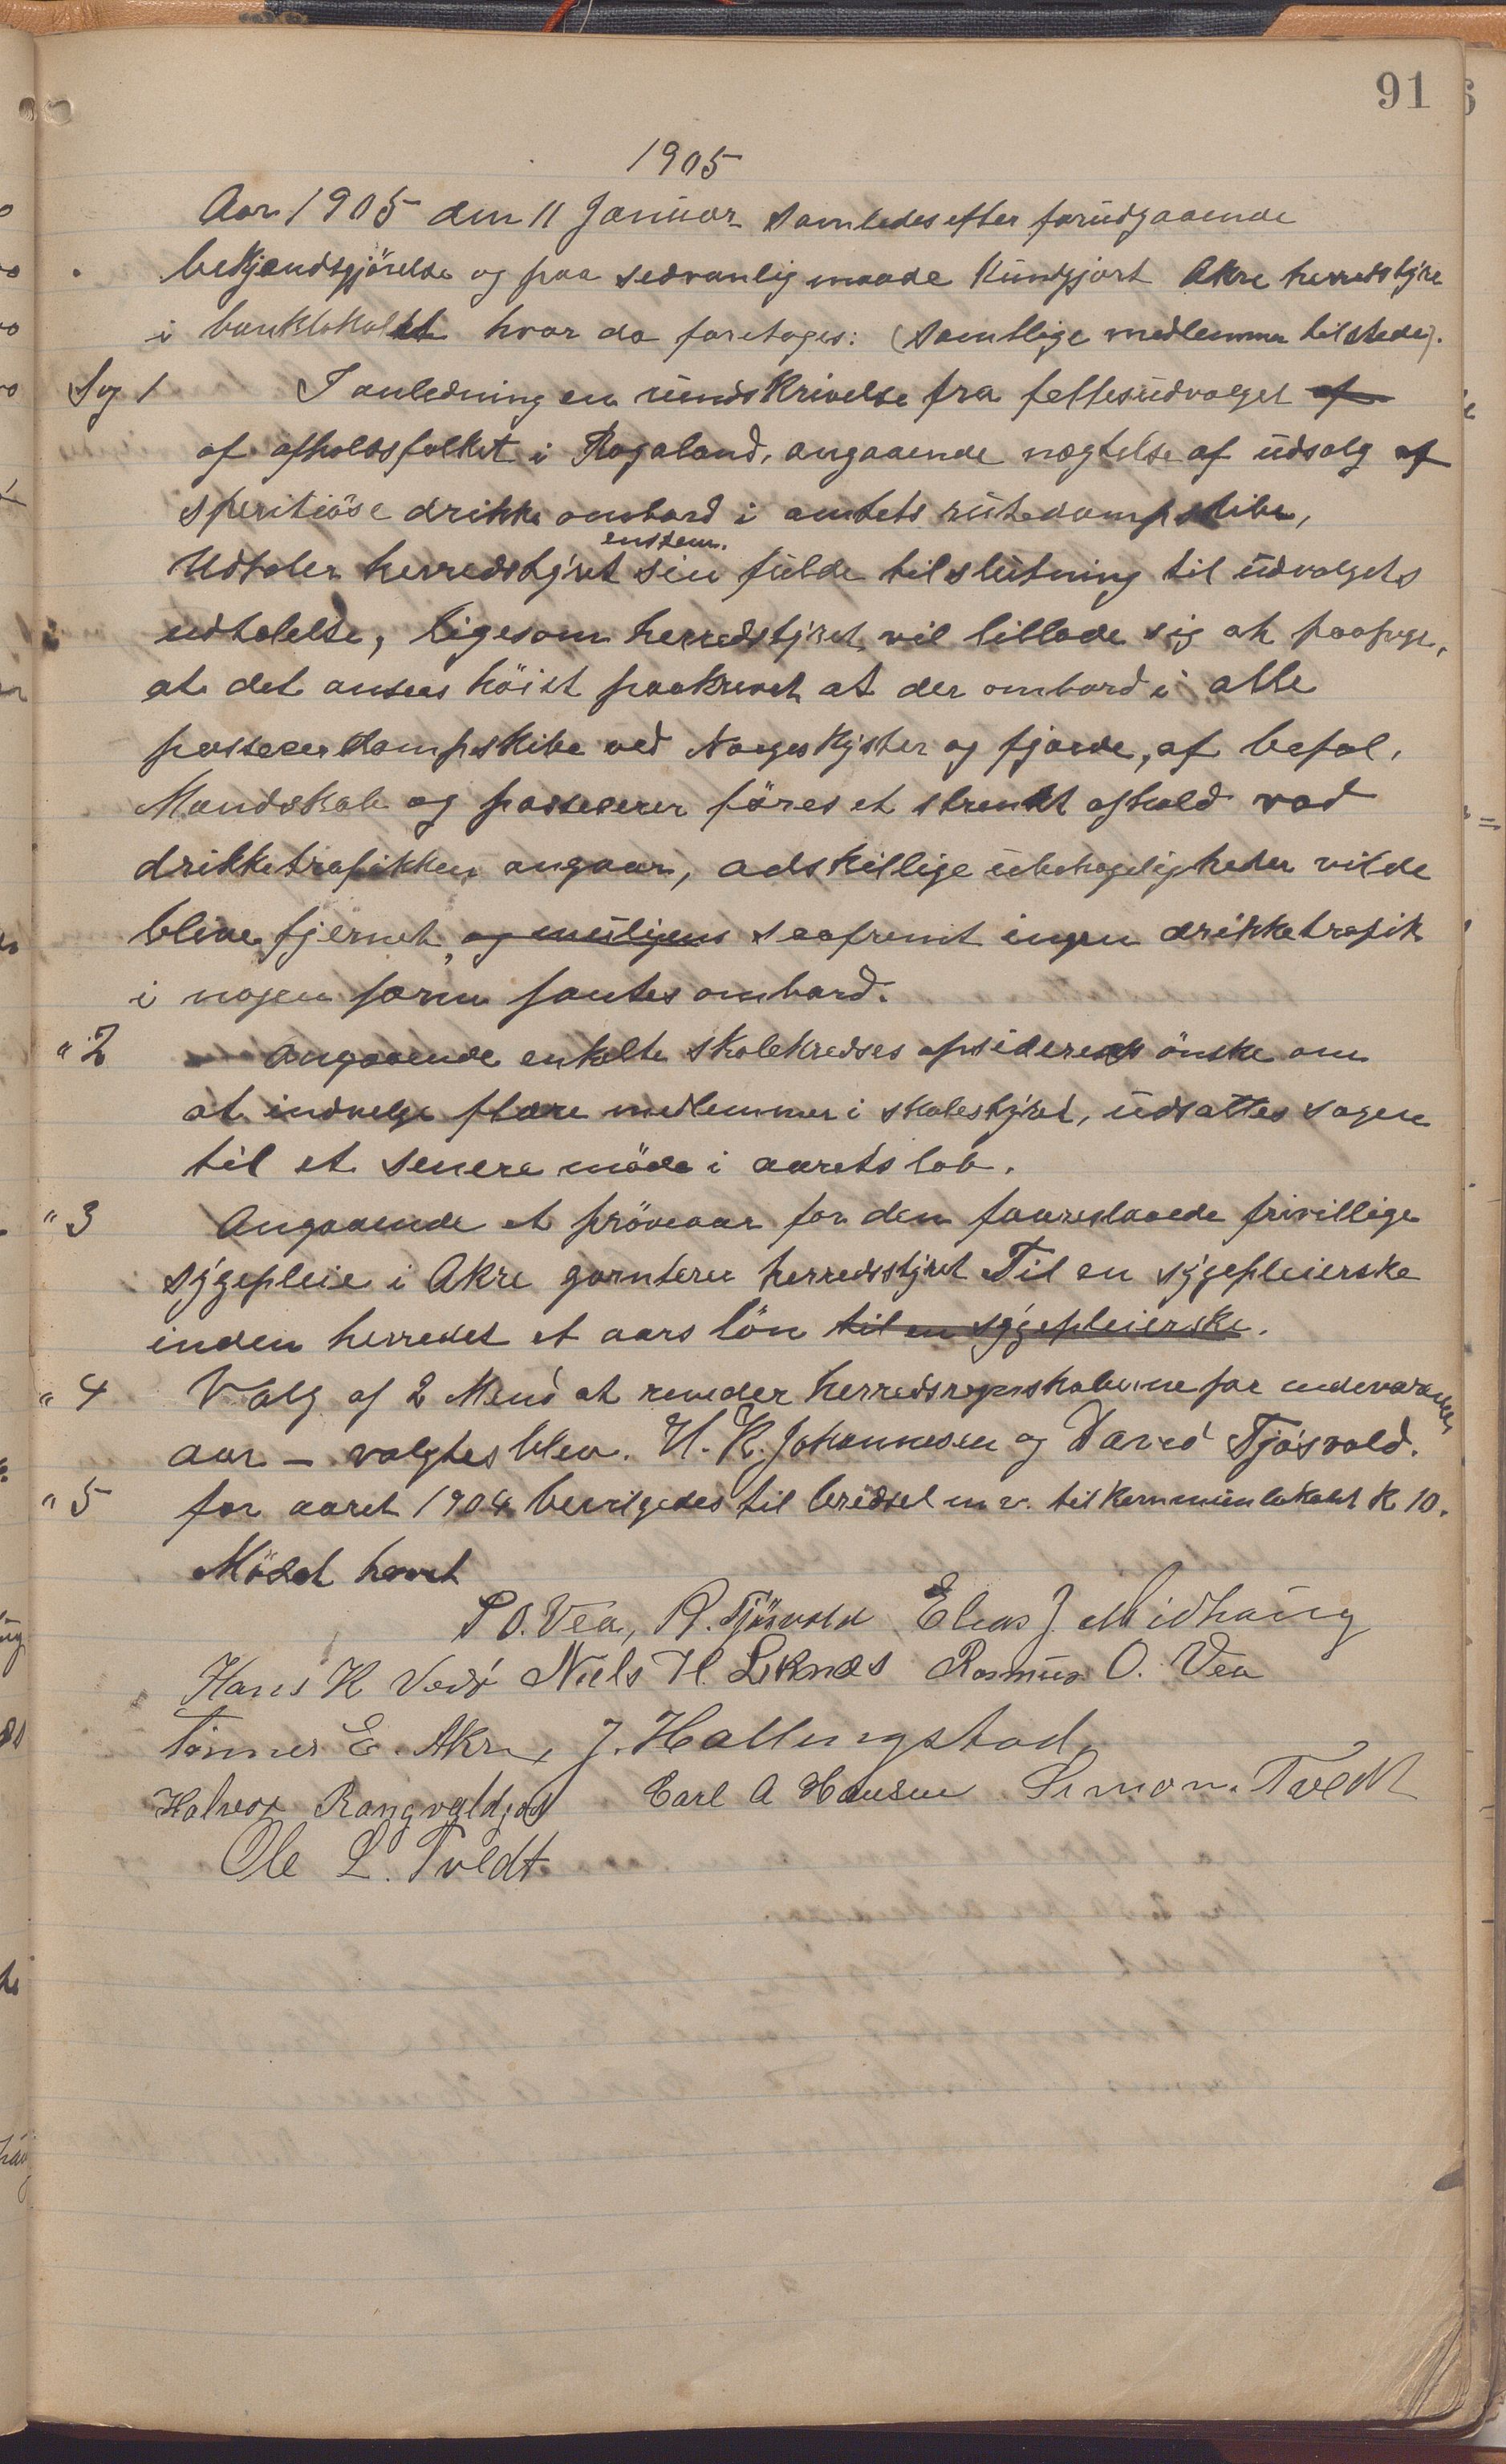 91
1905
Aar 1905 den 11 Januar samledes efter forudgaaende
bekjendsgjörelse og paa sedvanlig maade kundgjort Akre herredstyre
i banklokalet hvor da foretoges: (samtlige medlemmer tilstede).
Sag 1 I anledning en rundskrivelse fra fellesudvalget af
af afholdsfolket i Rogaland, angaaende nægtelse af udsalg af
speritiöse drikke ombord i amtets rutedampskibe,
enstem.
Udtaler herredstyret sin fulde tilslutning til udvalgets
udtalelse, ligesom herredstyret vil tillade sig at paapege,
at det ansees höist paakrevet at der ombord i alle
passeser dampskibe ved Norges kyster og fjorde, af befal,
Mandskab og passeserer föres et strenkt afhold vad
drikketrafikken angaar, adskillige ubehageligheder vilde
blive fjernet, og muligens saafremt ingen drikketrafik
i nogen form fantes ombord.
" 2 Angaaende enkelte skolekredses opsideres önske om
at indvelge flere medlemmer i skolestyret, udsattes sagen
til et senere möde i aarets lob.
" 3 Angaaende et pröveaar for den foureslaaede frivillige
sygepleie i Akre garnterer herredsstyret Til en sygepleierske
inden herredet et aars lön til en sygepleierske.
" 4 Valg af 2 Mend at reveder herredsregnskaberne for indeverende
aar – valgtes blev. H. K. Johannesen og David Tjösvold.
" 5 for aaret 1904 bevilgedes til bredsel m v. til kommunlokalet K 10.
Mödet hevet
P O. Vea, R. Tjösvold Elias J. Midhaug
Hans K Vedö Niels H. Liknes Rasmus O. Vea
Tönnes E. Akre, J. Hallingstad,
Halvor Rangvaldsen Carl A Hansen Simon. Tvedt
Ole L. Tvedt